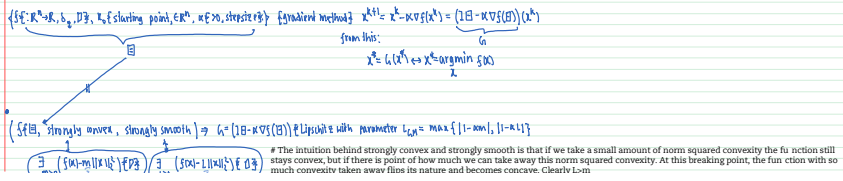 {{f:R^n→R, b_2, D}, x_0{starting point, ∈R^n, α{>0, stepsize}} {gradient method} x^{k+1} = x^k-α∇f(x^k) = (I⊟-α∇f(⊟))(x^k)
G
from this:
x* = G(x*) ↔ x* = argmin f(x)
x
(f{⊟, strongly convex, strongly smooth) ⇒ G=(I⊟-α∇f(⊟)) {Lipschitz with parameter L_{GM} = max{|1-αm|, |1-αL|}
∃ (f(x)-m||x||_2^2){D} ∃ (f(x)-L||x||_2^2){D}
# The intuition behind strongly convex and strongly smooth is that if we take a small amount of norm squared convexity the fu nction still
stays convex, but if there is point of how much we can take away this norm squared convexity. At this breaking point, the fun ction with so
much convexity taken away flips its nature and becomes concave. Clearly L>m